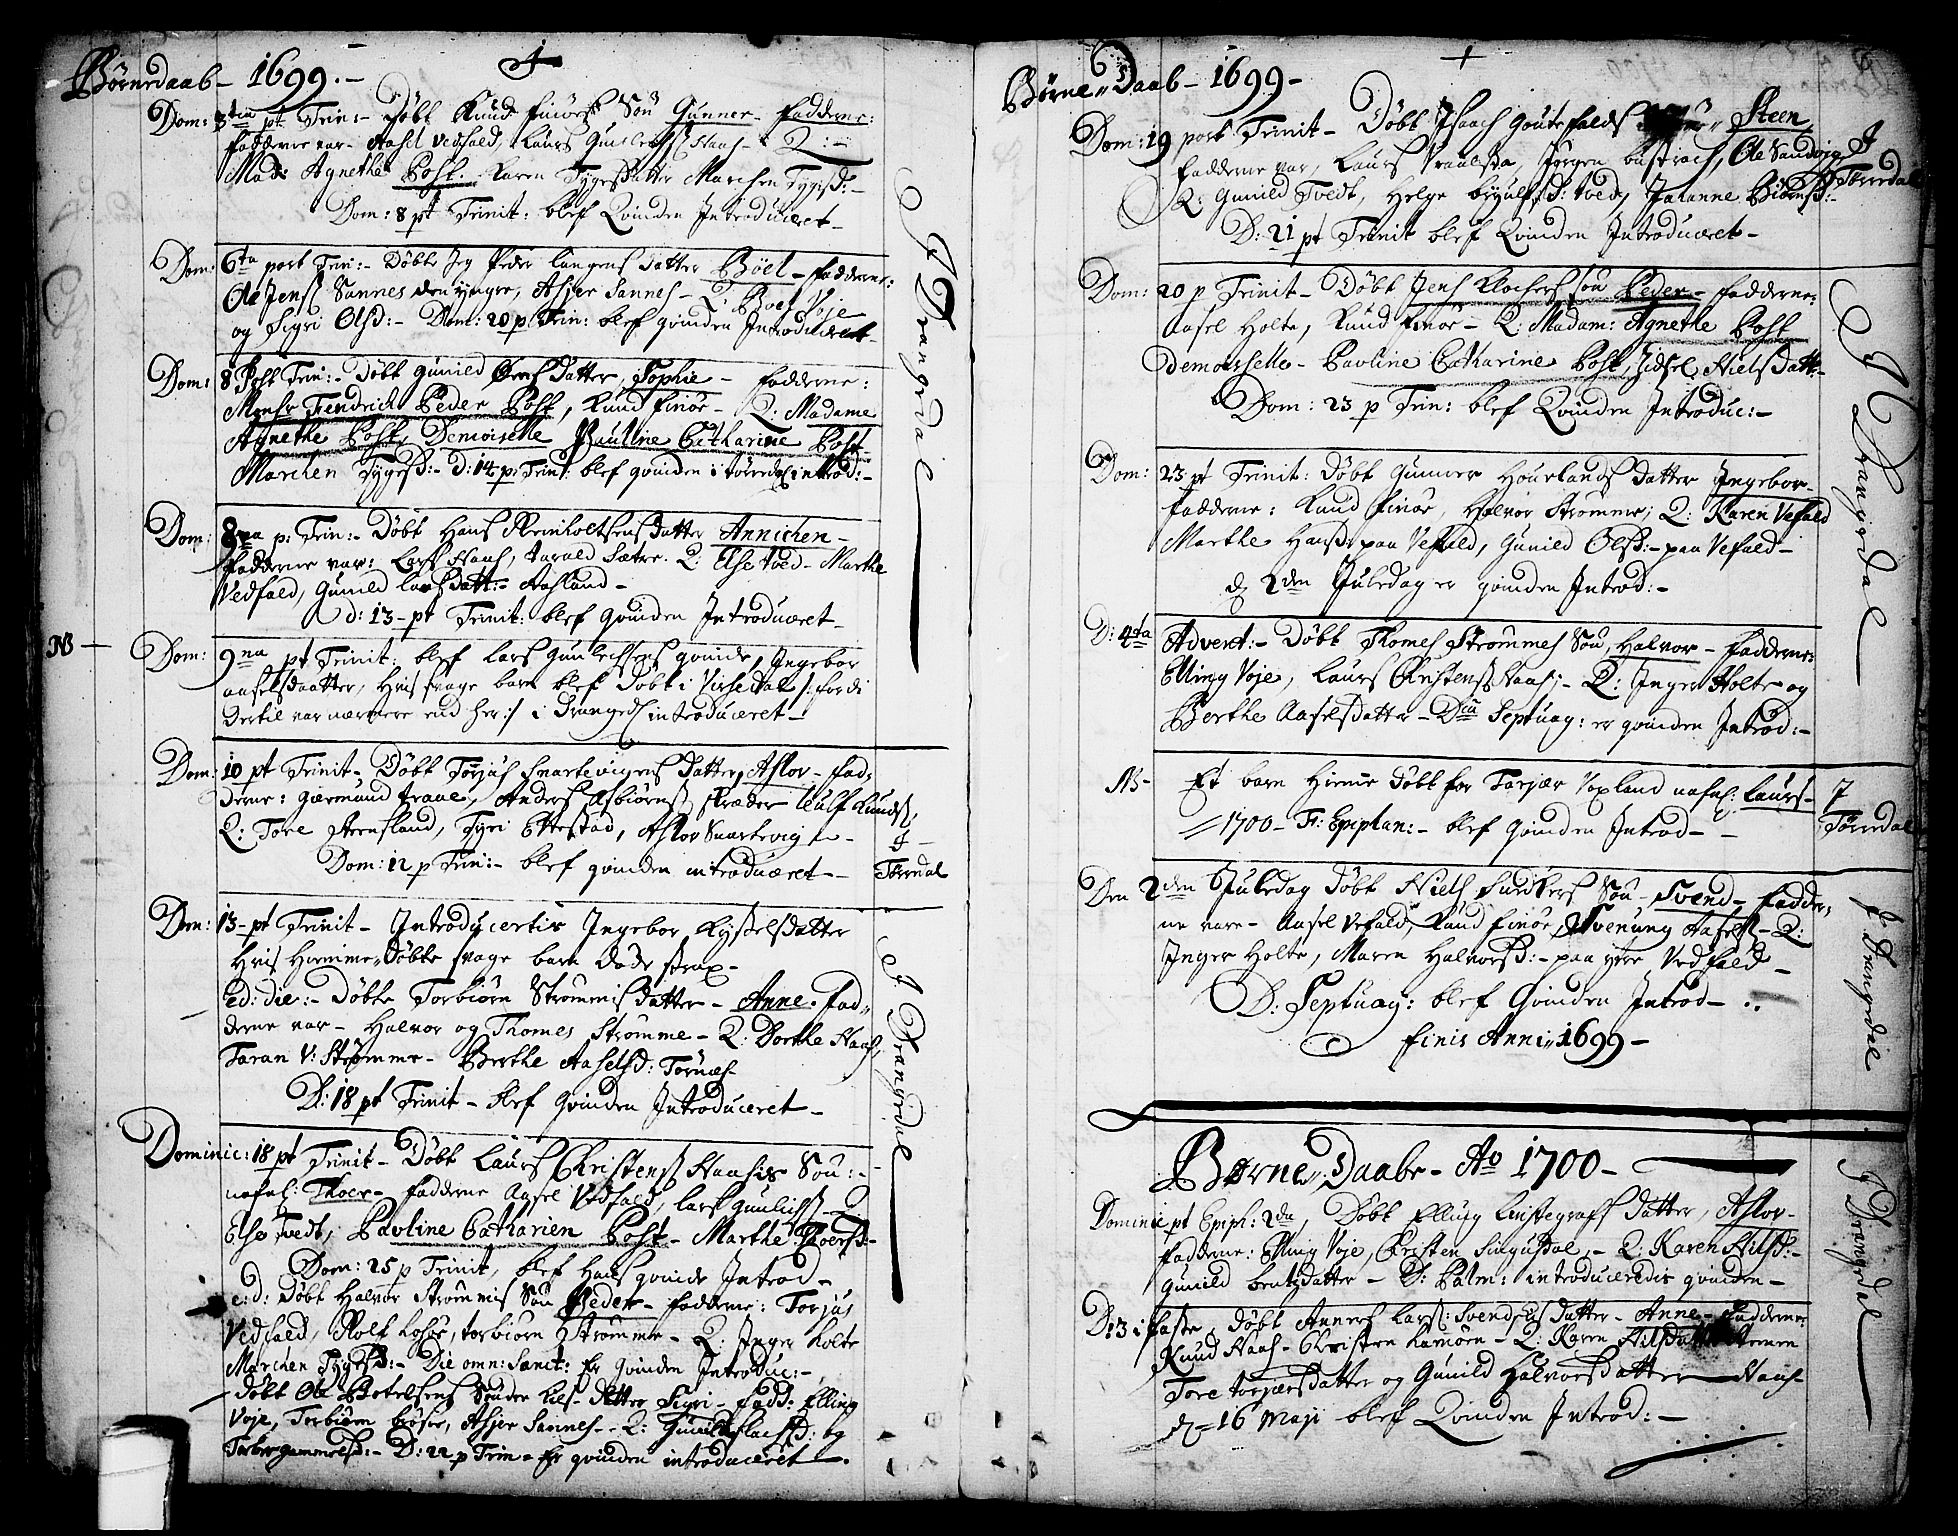 Børnedaab - 1699. -
Dom: 3tia pt Trin: - Døbt Knud Finøes Søn Gunner - Fadderne:
Fadderne var - Aasel Vedfald, Laurs Gunlechss Haas - Q: -
Mad: Agnethe Post. Karen Tygesdatter Marchen Tygisd: -
Dom: 8 pt Trinit: blef Qvinden Introduceret -
Dom: 6ta post Trin: - Døbte Jeg Peder Langens datter Böel - Fadderne:
Ole Jenss Sannes den yngre, Asjer Sannes - Q: Boel Voje
og Sigri Olsd: - Dom: 20 p Trin: blef qvinden Introduceret -
Dom: 8 Post Trin: - Døbt Gunild datter, Sophie - Fadderne:
Monsr Fendrich Peder Post, Knud Finöe - Q: Madame
Agnethe Post, Demoiselle Pauline Catharine Post
Marchen Tygesd: - D: 14 p: Trin: blef qvinden i Tørredal introd: -
Dom: 8va p: Trin: - Døbt Hans Reinholtsens datter Annichen -
Fadderne var: Lars Haas, Tarald Sætre. Q: Else Tved - Marthe
Vedfald, Gunild Larsdatt: - Aasland -
d: 13 - pt Trinit: blef qvinden Introduceret -
NB -
Dom: 9na pt Trinit: blef Lars Gunlechsens qvinde, Ingebor
Aaselsdaatter, hvis svage barn blef døbt i Virsedal /: fordi
dertil var nærmere end her :/ i Drangedl introduceret -
Dom: 10 pt Trinit - Døbt Torjus Snartevigens datter, Aslov - Fad,
derne: Giermund Traae, Anders Asbiørnss, skræder Leulf Knudss,
Q: Tore Steensland, Tyri Ettestad, Aslov Snartevig -
Dom: 12 p Trin: - blef qvinden introduceret -
J -
Tørredal
Dom: 13 - pt Trinit - Introducertis Ingebor Kysselsdatter
Hvis Hiemme-Døbte svage barn døde strax -
ed: die: - Døbte Torbiörn Strømmis datter - Anne. Fad-
derne var - Halvor og Thomes Strømme - Q: Dorthe Haas,
Taran V: Strømme - Berthe Aaselsd: Törnes -
D: 18 pt Trinit - blef Qvinden Introduceret -
Dominic: 18 pt Trinit - Døbt Laurs Christenss Haasis Søn: -
nafnl: Thoer - Fadderne Aasel Vedfald, Lars Gunlichss - Q
Else Tvedt, Pavline Catharien Post - Marthe Thoersd -
Dom: 25 p Trinit, blef hans qvinde Introd -
e: d: Døbt Halvor Strømmis Søn Peder - Fadderne: Torjus
Vedfald, Rolf , Torbiørn Strømme - Q: Inger Holte
Marchen Tygesd: - Die omn: Sanct: Er qvinden Introduc: -
Døbt Ole Botelsens datter Sigri - Fadd: Elling
Voje, Torbiørn , Asjer Sannes - Q: og
Torber Gammelsd: - D: 22 p Trin - Er qvinden introduceret -.
J Drangedal
J Drangedal
Børne Daab - 1699 -
Dom: 19 post Trinit - Døbt Isaach Goutefalds Steen
Fadderne var, Laurs Vraalsta, Jørgen Bustrach, Ole Sandvige
Q: Gunild Tvedt, Helge Tved, Johanne Biörnsd: -
D: 21 pt Trinit blef Qvinden Introduceret -
J
Tørredal
Dom: 20 p Trinit - Døbt Jens Klochers Søn Peder - Fadderne:
Aasel Holte, Knud Finöe - Q: Madam: Agnethe Post
Demoisselle - Pavline Catharine Post, Zidsel Nielsdatt: -
Dom: 23 p Trin: blef Qvinden Introduc: -
Dom: 23 pt Trinit: Døbt Gunner Hourlands datter Ingebor -
Fadderne: Knud Finöe, Halvor Strømme; Q: Karen Vefald
Marthe Hansd: paa Vefald, Gunild Olsd: - paa Vefald -
d 2den Juledag er qvinden Introd: -
D: 4ta Advent: - Døbt Thomes Strømmes Søn, Halvor - Fadderne:
Elling Voje, Laurs Christenss Haas; - Q: Inger Holte og
Berthe Aaselsdatter - Dm Septuag: er qvinden Introd: -
J Drangedal
NB - Et barn hiemme døbt for Torjær Voxland nafnl: Laurs -
1700 - F: Epiphan: - blef qvinden Introd -
J
Tørredal
Den 2den Juledag døbt Niels Søn - Svend - Fadder,
ne vare - Aasel Vefald, Knud Finöe, Svenung Aaselss - Q:
Inger Holte, Maren Halvorsd: - paa ytre Vedfald -
D: Septuag: blef Qvinden Introd -
Finis Anni 1699 -
J Drangedal
Børne Daabe - Ao 1700 -
Dominic pt Epiph: 2da, Døbt Elling datter, Aslov -
Fadderne: Elling Voje, Christen Singusdal, - Q: Karen Nilsd: -
Gunild Bentsdatter - D: Palm: introduceredis qvinden -
D: 3 i Faste, døbt Anners Larss: Svendsens datter - Anne - Fadderne
Knud Haas - Christen - Q: Karen Nilsdatt
Tore Torjærsdatter og Gunild Halvorsdatter Haas -
d 16 Maji blef Qvinden Introd: -
J Drangedal